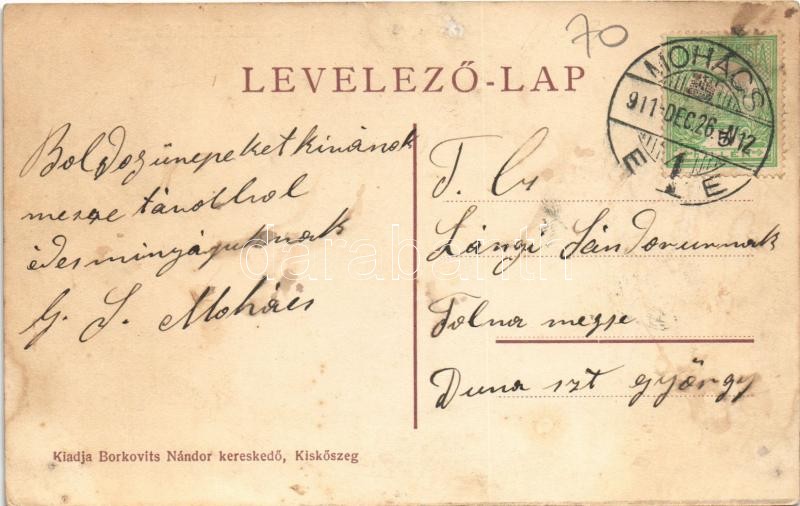 70
LEVELEZŐ-LAP
MOHÁCS
911 DEC. 26. N12
E 1 E
5
Boldog ünnepeket kívánok
mesze távolbol
édesminyájuknak
G. S. Mohács
T. Cz
Lángi Sándorurnak
Tolna megje
Duna szt györgy
Kiadja Borkovits Nándor kereskedő, Kiskőszeg
darabanth